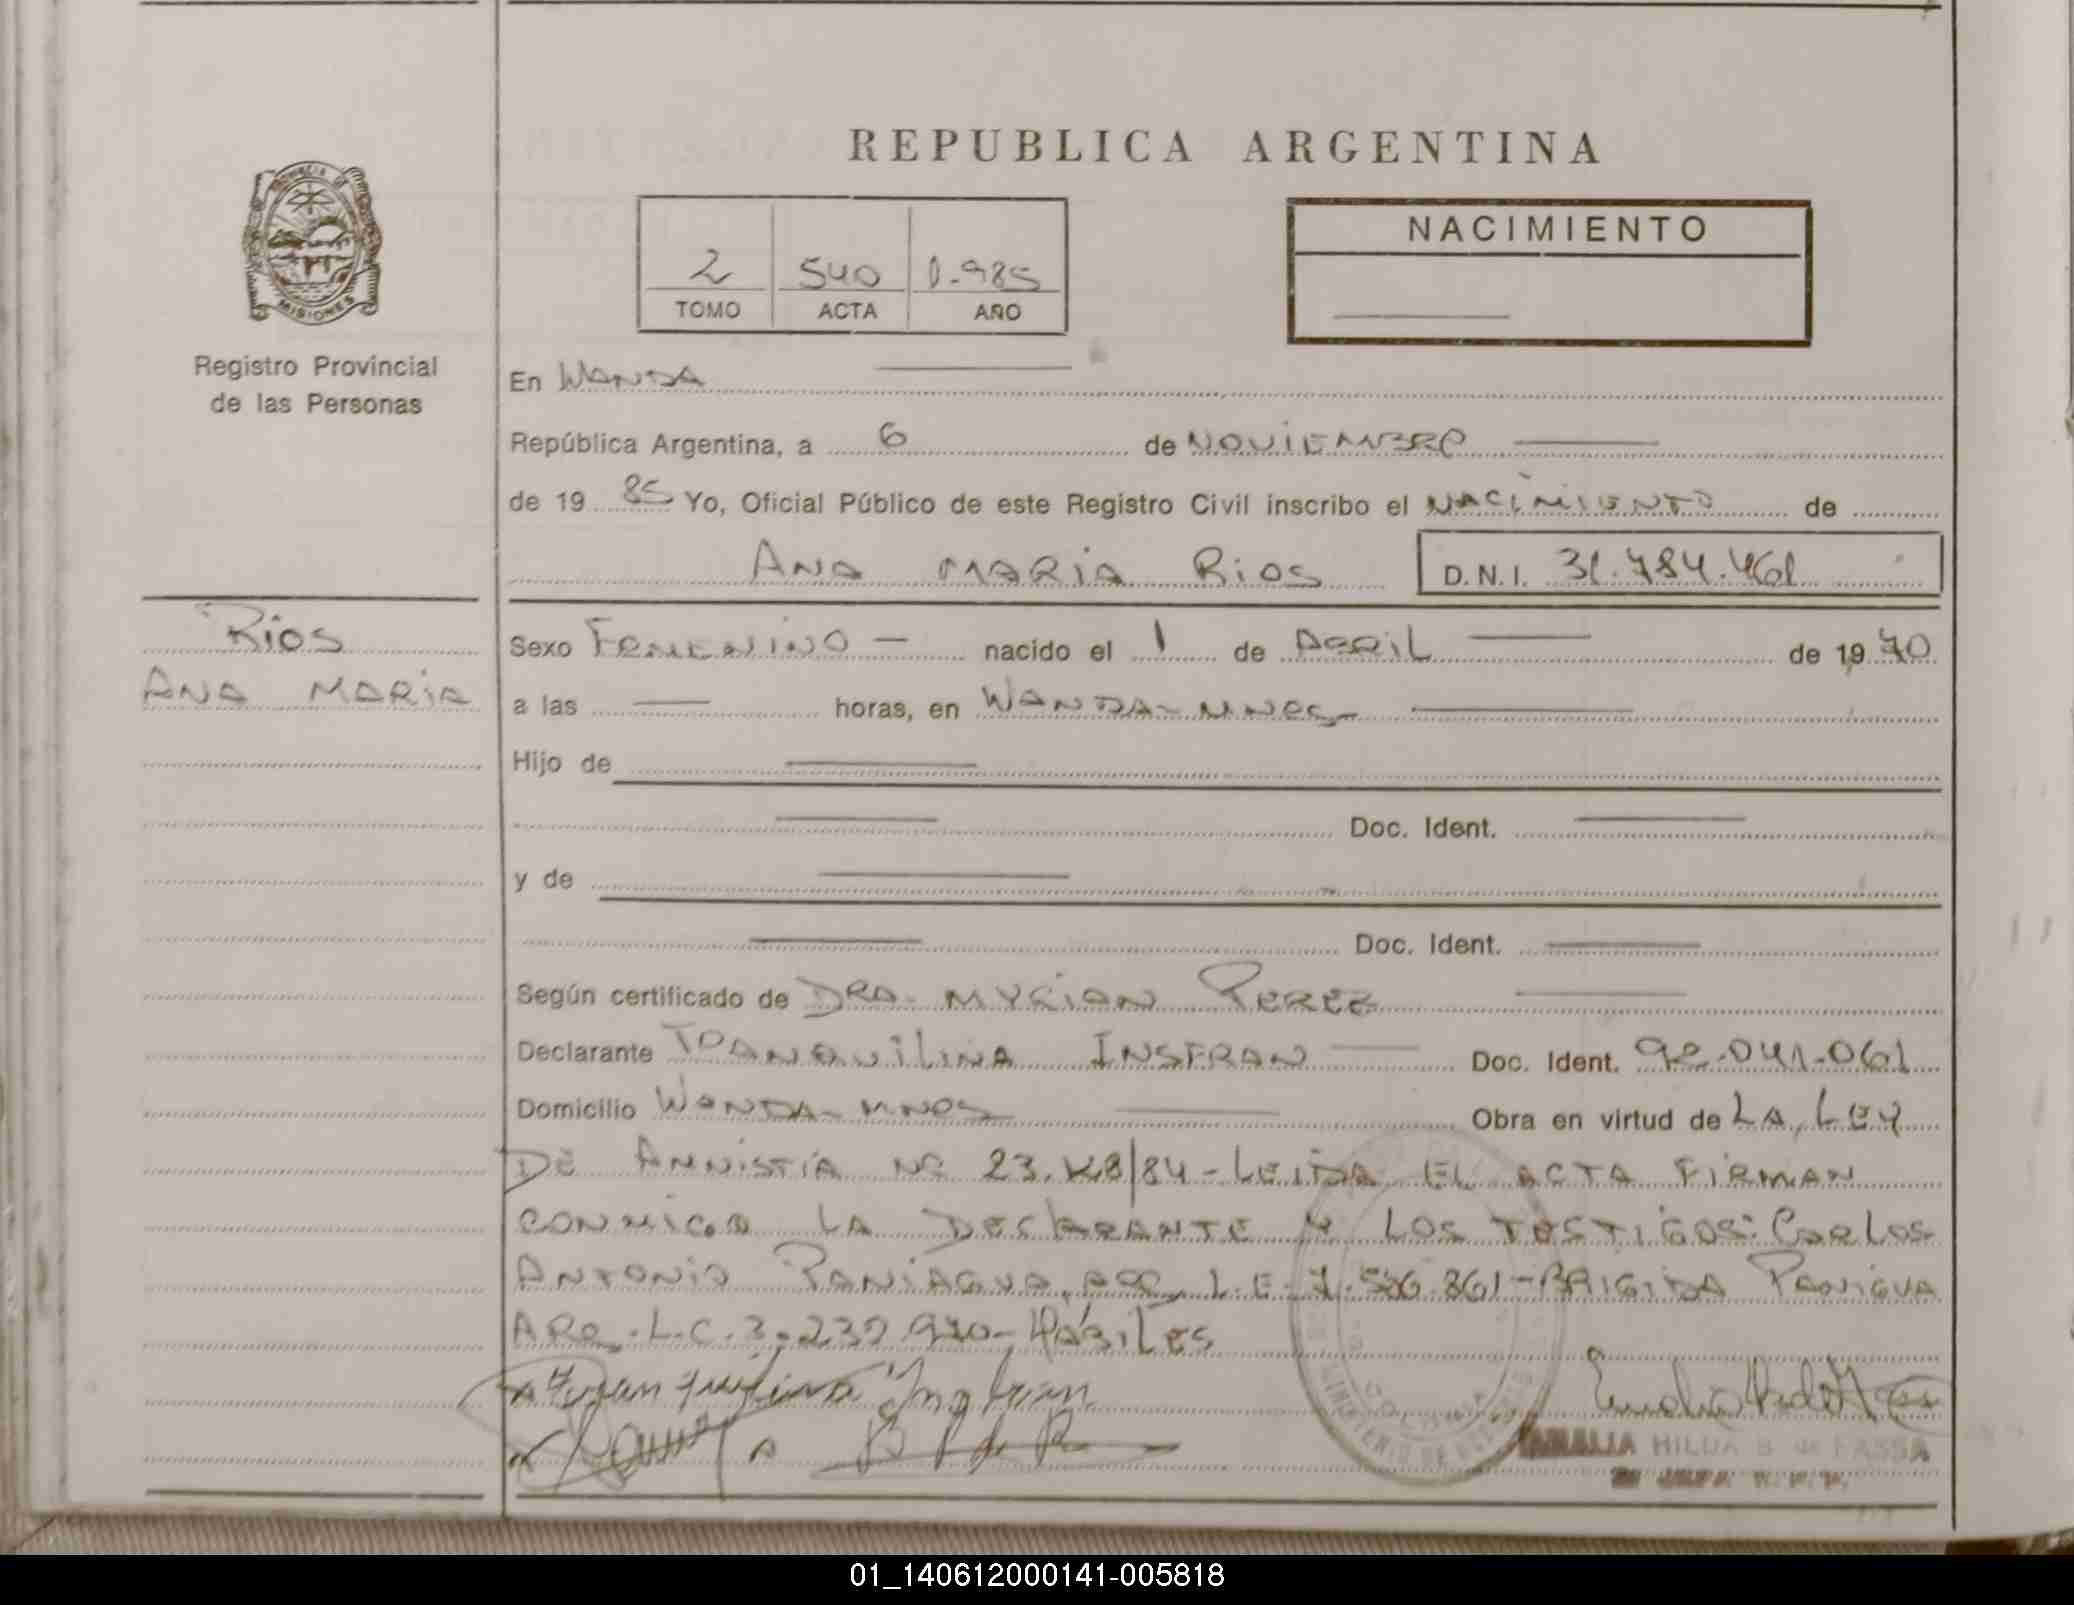 REPUBLICA ARGENTINA
MISIONES
Registro Provincial
de las Personas
2 540 1.985
TOMO ACTA AÑO
NACIMIENTO
En WANDA
República Argentina, a 6 de NOVIEMBRE
de 19 85 Yo, Oficial Público de este Registro Civil inscribo el NACIMIENTO de
ANA MARIA RIOS D.N.I. 31.784.461
RIOS
ANA MARIA
Sexo FEMENINO nacido el 1 de ABRIL de 1970
a las horas, en WANDA-MNES
Hijo de
Doc. Ident.
y de
Doc. Ident.
Según certificado de DRA. MYRIAN PEREZ
Declarante TRANQUILINA INSFRAN Doc. Ident. 92.041.061
Domicilio WANDA-MNES Obra en virtud de LA LEY
DE AMNISTIA Nº 23. /84-LEIDA EL ACTA FIRMAN
CONMIGO LA DECLARANTE Y LOS TESTIGOS: CARLOS
ANTONIO PANIAGUA, ARG. L.E. 7. .861-BRIGIDA PANIGUA
ARG. L.C. 3.232.970-HÁBILES
Tranquilina Insfran
AMALIA HILDA B. de FASSA
JEFA R.P.P.
01_140612000141-005818